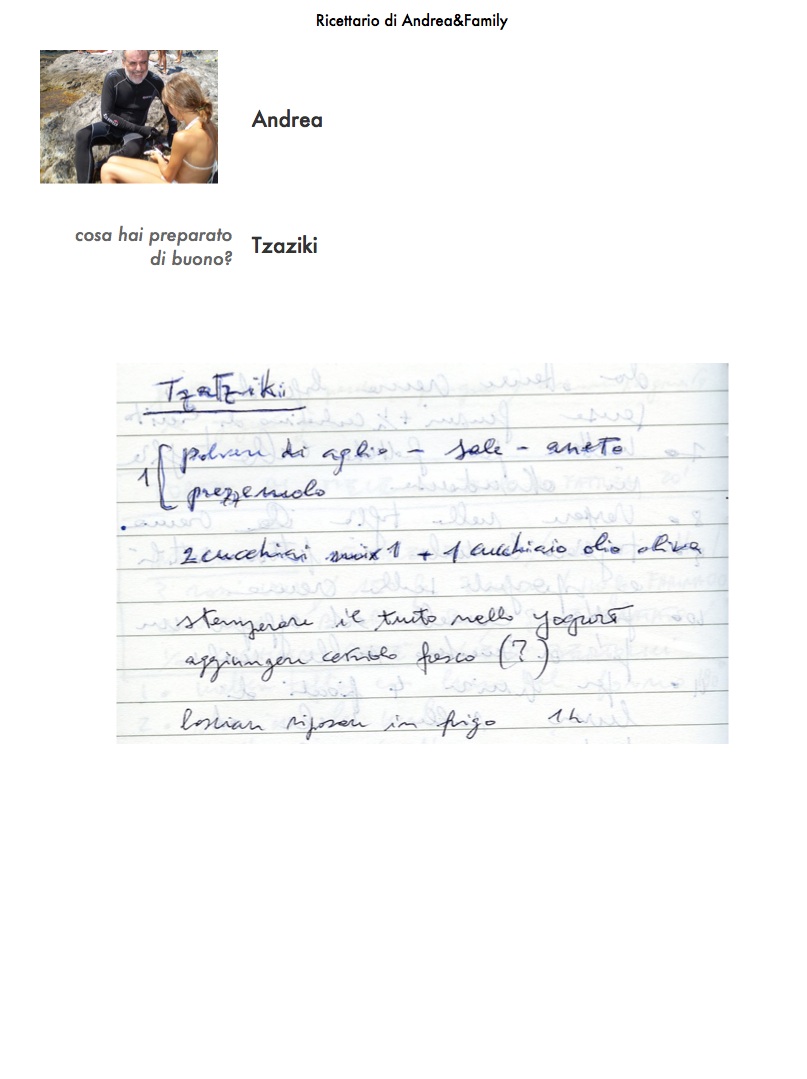 Ricettario di Andrea&Family
Andrea
cosa hai preparato
di buono?
Tzaziki
Tzatziki
polvere di aglio - sale - aneto
1
prezzemolo
2 cucchiai mix 1 + 1 cucchiaio olio oliva
stemperare il tutto nello yogurt
aggiungere cetriolo fresco (?)
lasciare riposare in frigo 1h